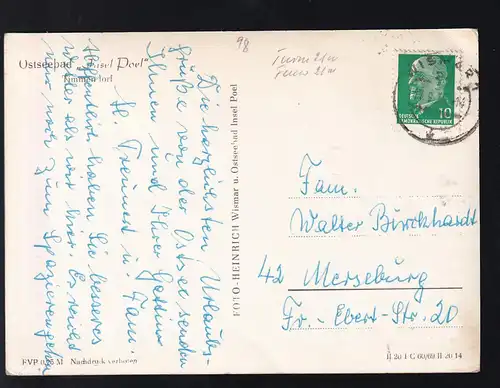 Ostseebad „Insel Poel“
Timmendorf
Die herzlichsten Urlaubs-
grüße von der Ostsee senden
Ihnen und Ihrer Gattin
u. Fam.
Hoffentlich haben Sie besseres
Wetter als wir hier. Es reicht
nur noch zum Spazierengehn
FOTO-HEINRICH Wismar u. Ostseebad Insel Poel
98
DEUTSCHE
DEMOKRATISCHE REPUBLIK
10
Fam.
Walter Burckhardt
42 Merseburg
Fr.-Ebert-Str. 20
EVP 0,25 M Nachdruck verboten